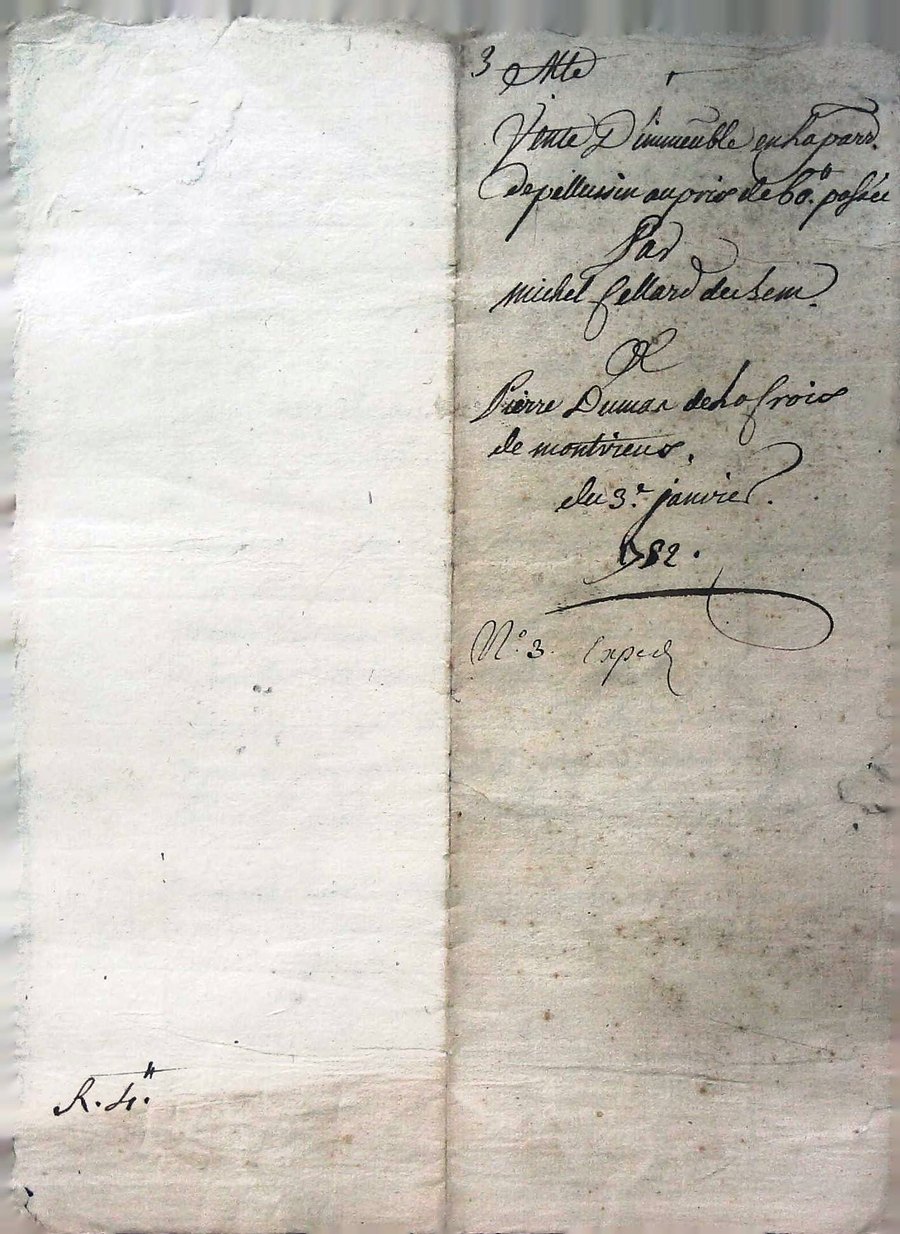 3 Acte
Vente D'immeuble en la parr.
de pellussin au prix de 60." passée
Par
Michel Cellard du sem.
A
Pierre Dumas de La Croix
de montvieux.
du 3.e janvier.
1782.
N.o 3. Exped
R. 4."